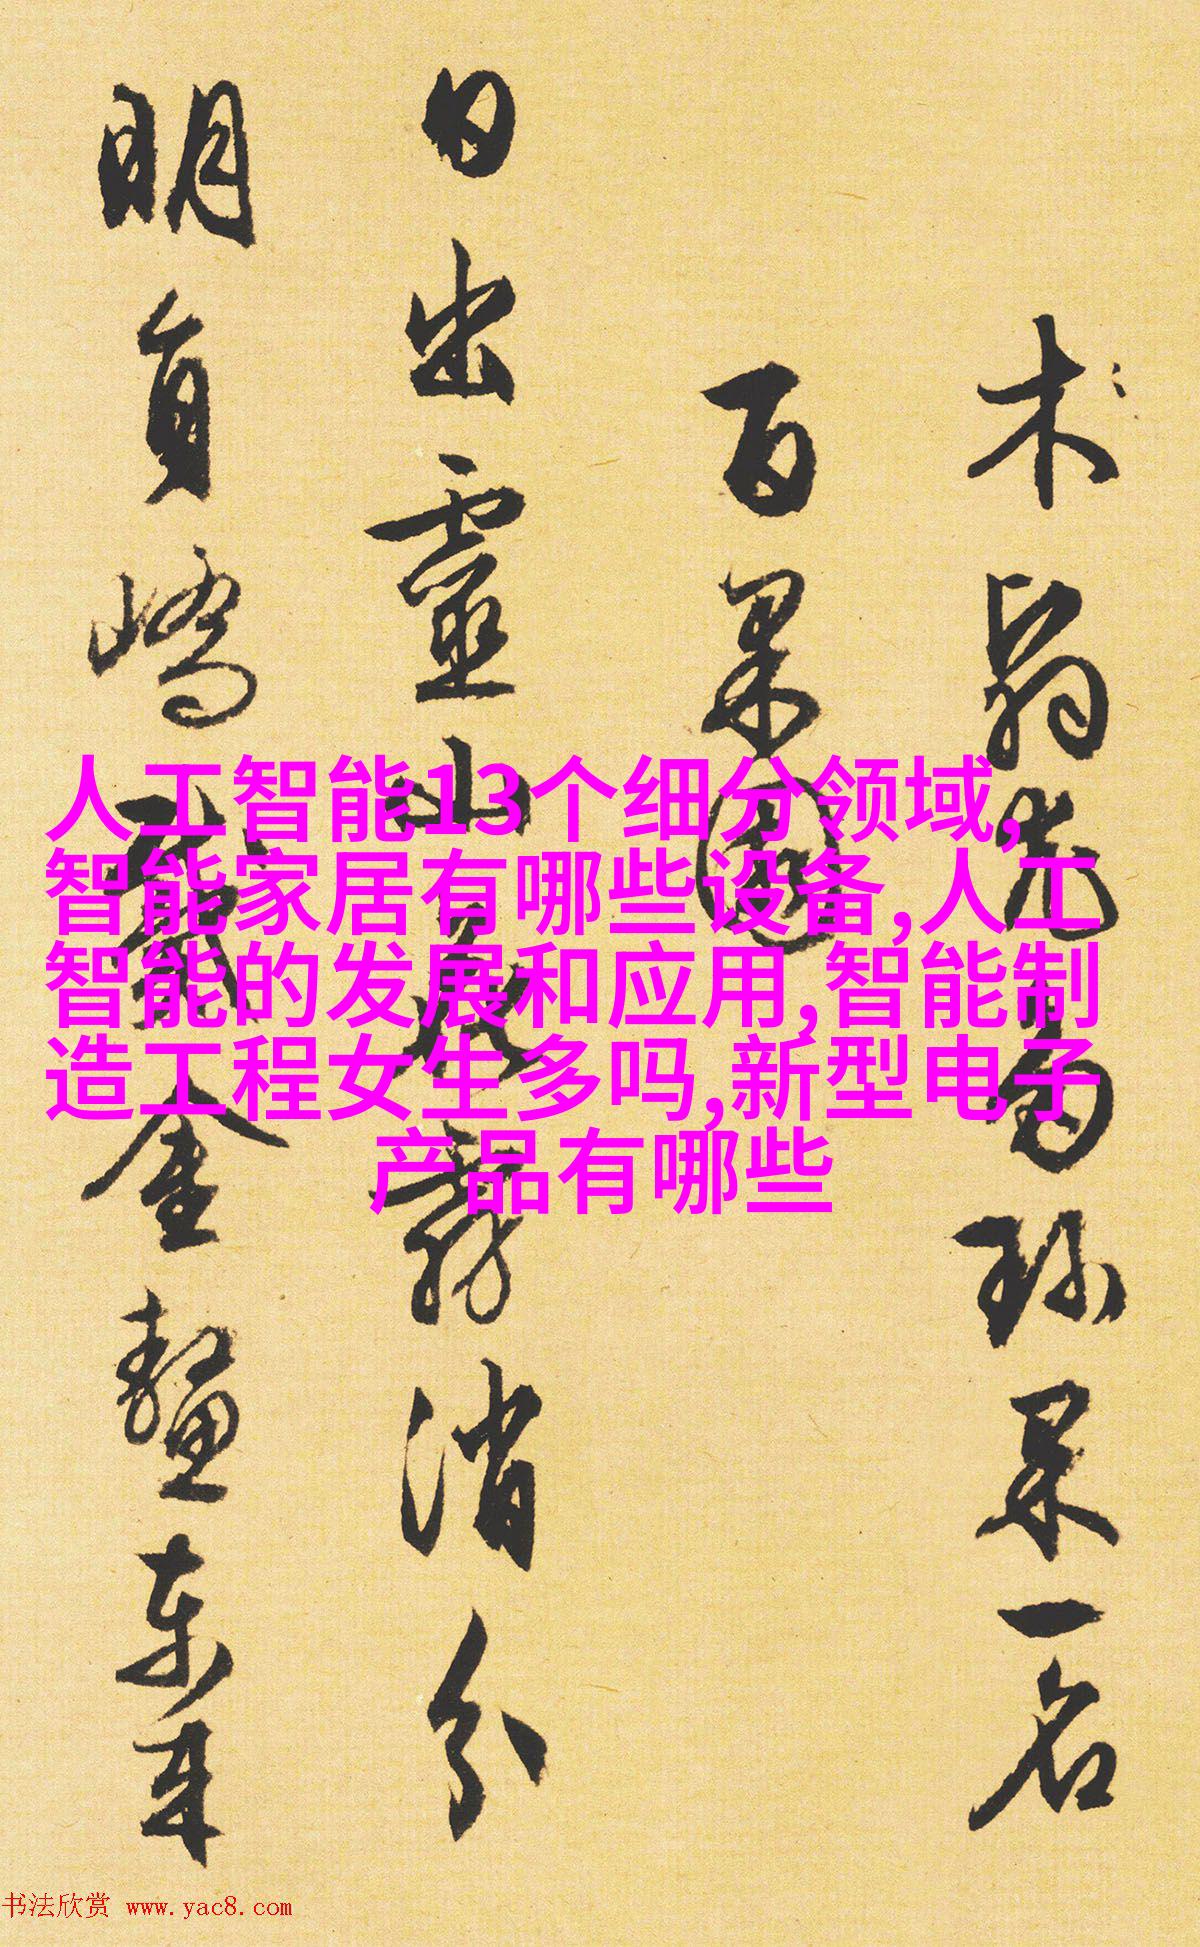 人工智能13个细分领域,
智能家居有哪些设备,人工
智能的发展和应用,智能制
造工程女生多吗,新型电子
产品有哪些
木 珎果一名
百果園
日出靈山晨霧消分
明員嶠戴金鼇東来
书法欣赏 www.yac8.com